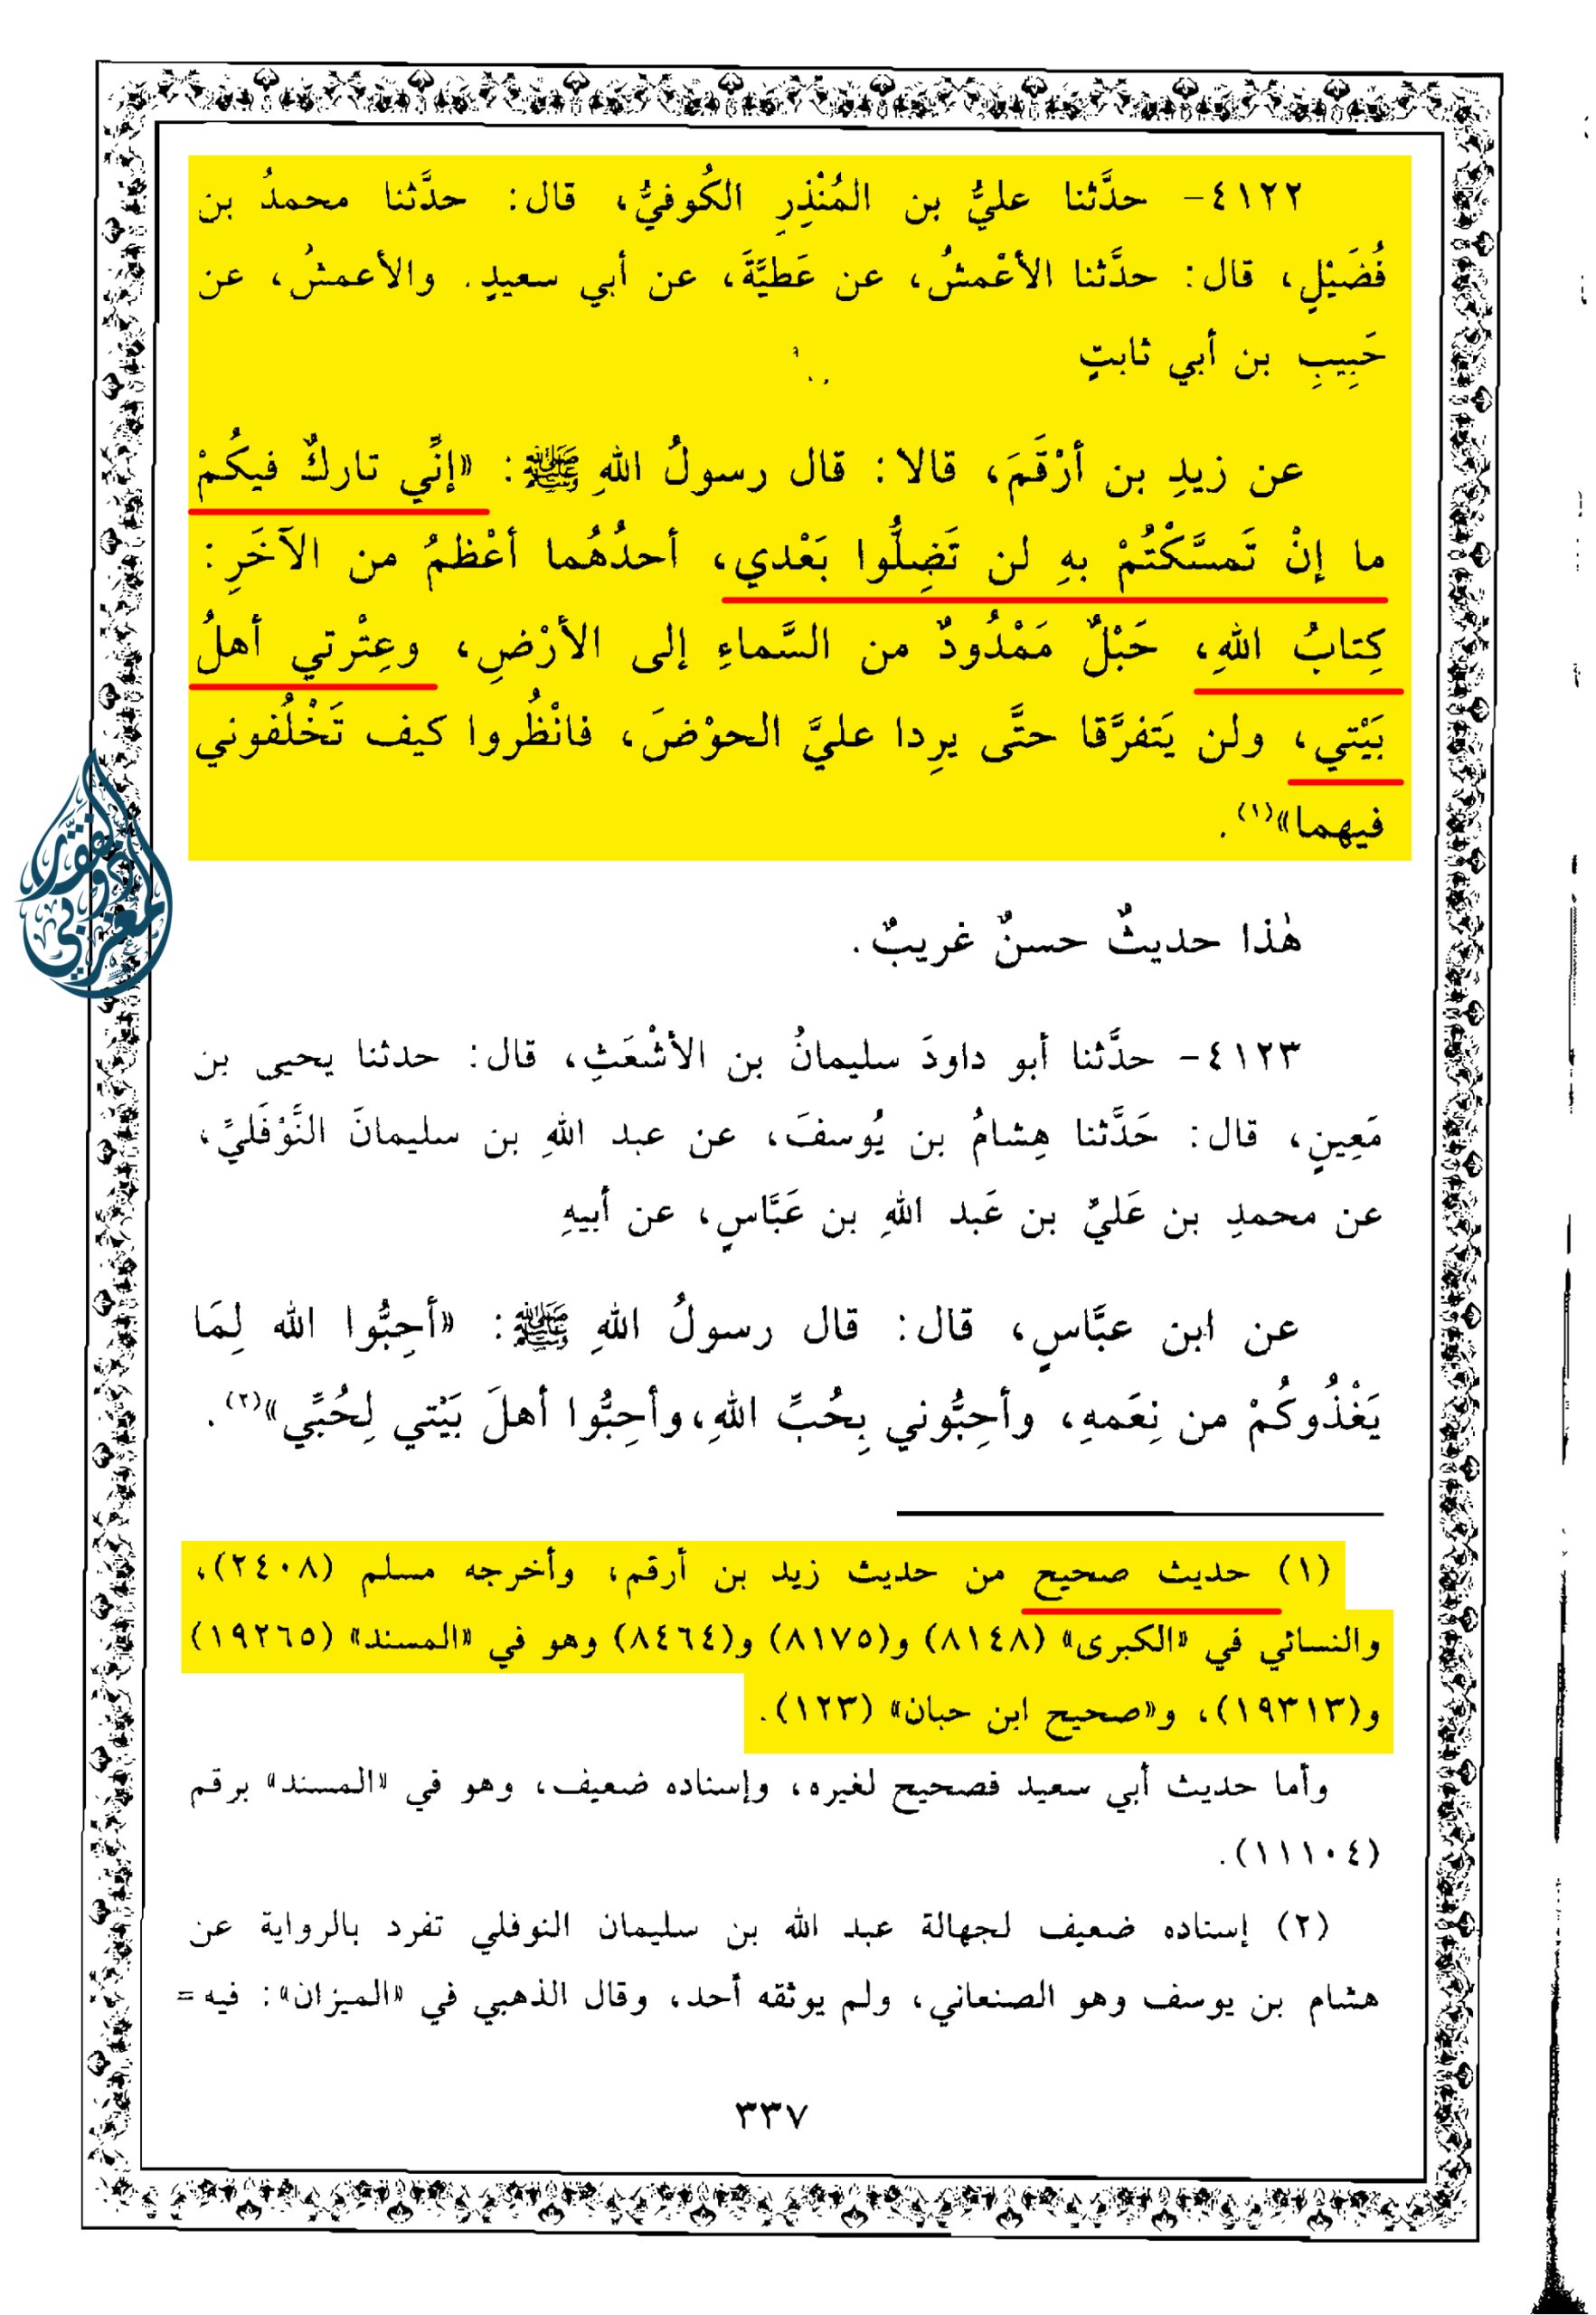 ٤١٢٢- حدَّثنا عليُّ بن المُنْذِرِ الكُوفيُّ، قال: حدَّثنا محمدُ بن
فُضَيْلٍ، قال: حدَّثنا الأعْمشُ، عن عَطيَّةَ، عن أبي سعيدٍ. والأعمشُ، عن
حَبِيبِ بن أبي ثابتٍ
عن زيدِ بن أرْقَمَ، قالا: قال رسولُ اللهِ ﷺ: «إنِّي تاركٌ فيكُمْ
ما إنْ تَمسَّكْتُمْ بهِ لن تَضِلُّوا بَعْدي، أحدُهُما أعْظمُ من الآخَرِ:
كِتابُ اللهِ، حَبْلٌ مَمْدُودٌ من السَّماءِ إلى الأرْضِ، وعِتْرتي أهلُ
بَيْتي، ولن يَتفرَّقا حتَّى يرِدا عليَّ الحوْضَ، فانْظُروا كيف تَخْلُفوني
فيهما»(١).
هٰذا حديثٌ حسنٌ غريبٌ.
٤١٢٣- حدَّثنا أبو داودَ سليمانُ بن الأشْعَثِ، قال: حدثنا يحيى بن
مَعِينٍ، قال: حَدَّثنا هِشامُ بن يُوسفَ، عن عبد اللهِ بن سليمانَ النَّوْفَليِّ،
عن محمدِ بن عَليِّ بن عَبد اللهِ بن عَبَّاسٍ، عن أبيهِ
عن ابن عبَّاسٍ، قال: قال رسولُ اللهِ ﷺ: «أحِبُّوا الله لِمَا
يَغْذُوكُمْ من نِعَمهِ، وأحِبُّوني بِحُبِّ اللهِ، وأحِبُّوا أهلَ بَيْتي لِحُبِّي»(٢).
(١) حديث صحيح من حديث زيد بن أرقم، وأخرجه مسلم (٢٤٠٨)،
والنسائي في «الكبرى» (٨١٤٨) و(٨١٧٥) و(٨٤٦٤) وهو في «المسند» (١٩٢٦٥)
و(١٩٣١٣)، و«صحيح ابن حبان» (١٢٣).
وأما حديث أبي سعيد فصحيح لغيره، وإسناده ضعيف، وهو في «المسند» برقم
(١١١٠٤).
(٢) إسناده ضعيف لجهالة عبد الله بن سليمان النوفلي تفرد بالرواية عن
هشام بن يوسف وهو الصنعاني، ولم يوثقه أحد، وقال الذهبي في «الميزان»: فيه =
٣٣٧